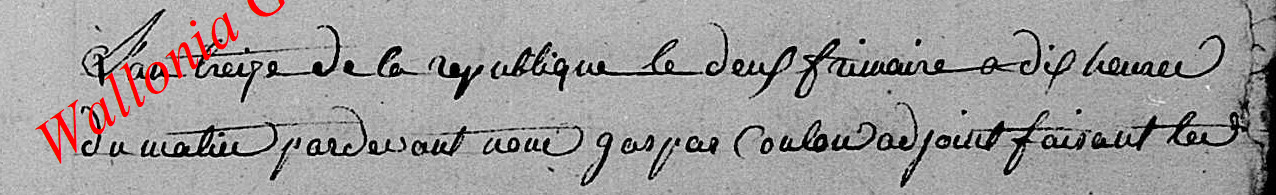 L'an treize de la republique le deux frimaire a dix heures
du matin pardevant nous gaspar Coulon adjoint faisant les
Wallonia G